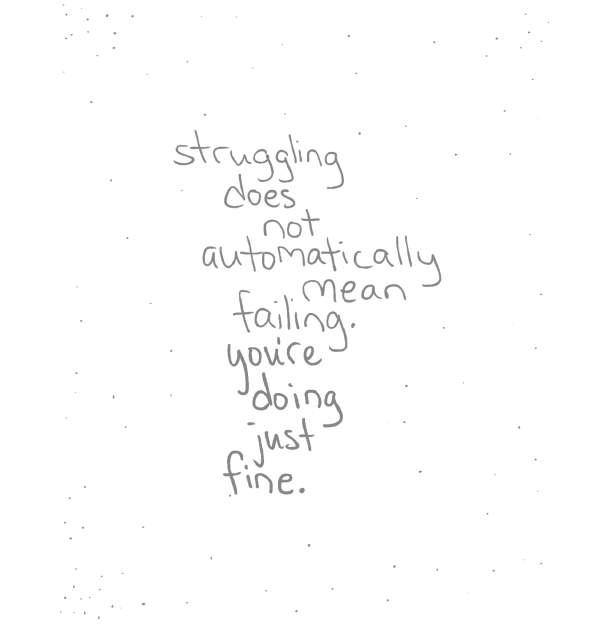 struggling
does
not
automatically
mean
failing.
you're
doing
just
fine.